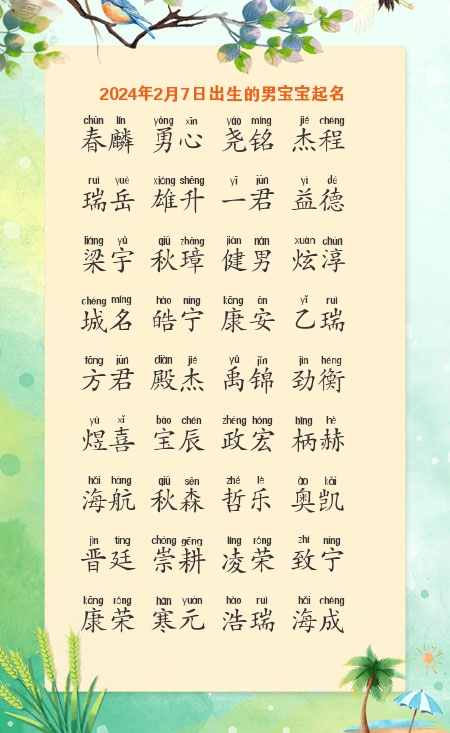 2024年2月7日出生的男宝宝起名
chūn lín yǒng xīn yáo míng jié chéng
春麟 勇心 尧铭 杰程
ruì yuè xióng shēng yī jūn yì dé
瑞岳 雄升 一君 益德
liáng yǔ qiū zhāng jiàn nán xuàn chún
梁宇 秋璋 健男 炫淳
chéng míng hào níng kāng ān yǐ ruì
城名 皓宁 康安 乙瑞
fāng jūn diàn jié yǔ jǐn jìn héng
方君 殿杰 禹锦 劲衡
yù xǐ bǎo chén zhèng hóng bǐng hè
煜喜 宝辰 政宏 柄赫
hǎi háng qiū sēn zhé lè ào kǎi
海航 秋森 哲乐 奥凯
jìn tíng chóng gēng líng róng zhì níng
晋廷 崇耕 凌荣 致宁
kāng róng hán yuán hào ruì hǎi chéng
康荣 寒元 浩瑞 海成